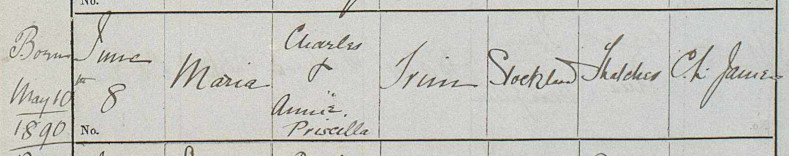 No.
Born
May 10
1890
June
8th
No.
Maria
Charles
&
Annie
Priscilla
Trim
Stockland
Thatcher
James